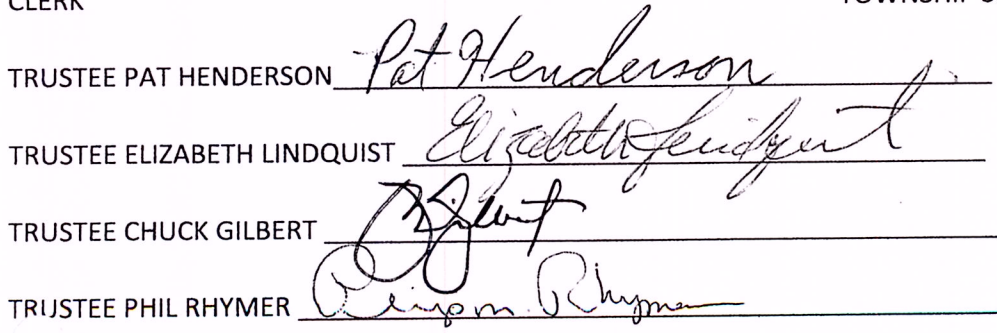 CLERK TOWNSHIP
TRUSTEE PAT HENDERSON Pat Henderson
TRUSTEE ELIZABETH LINDQUIST Elizabeth Lindquist
TRUSTEE CHUCK GILBERT Gilbert
TRUSTEE PHIL RHYMER Rhymer